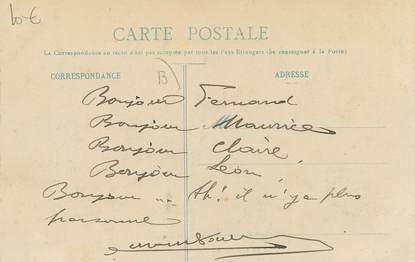 10 €
CARTE POSTALE
La Correspondance au recto n'est pas acceptée par tous les Pays Etrangers (Se renseigner à la Poste)
CORRESPONDANCE
B
ADRESSE
Bonjour Fernand
Bonjour Maurice
Bonjour Claire,
Bonjour Léon,
Bonjour ... Ah! il n'y a plus
personne